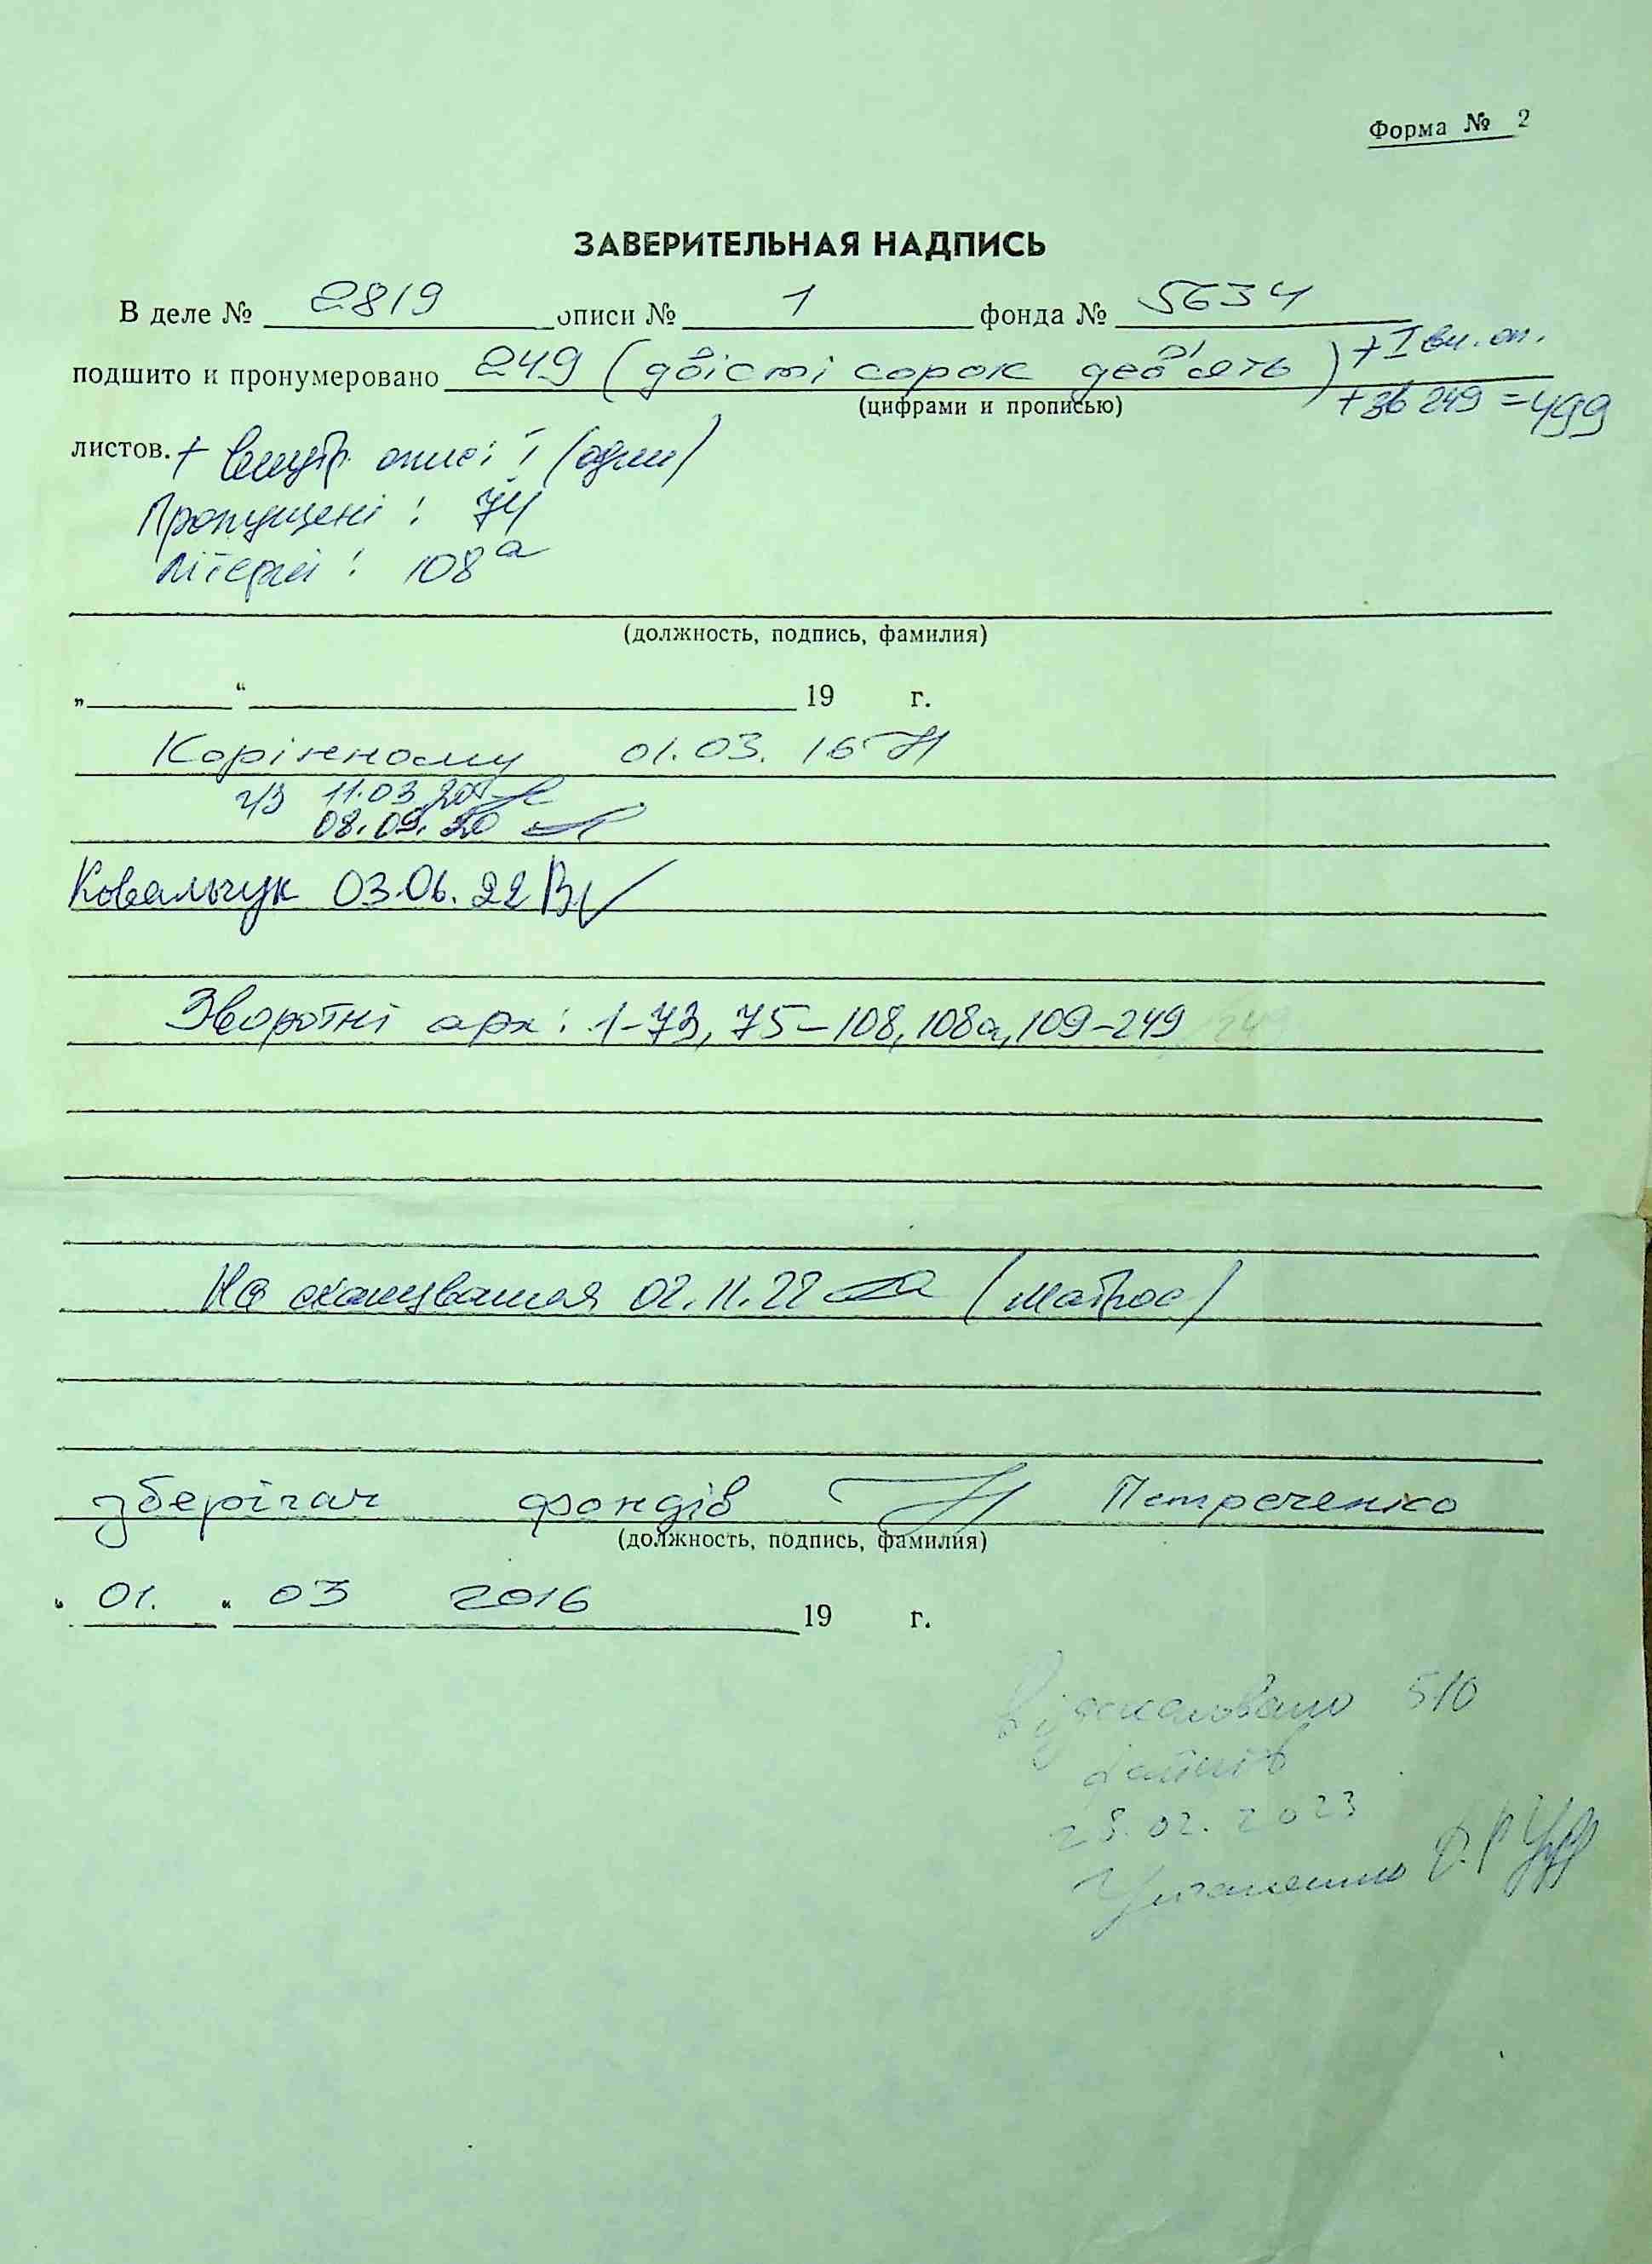 Форма № 2
ЗАВЕРИТЕЛЬНАЯ НАДПИСЬ
В деле № 2819 описи № 1 фонда № 5634
+ I вн. оп.
подшито и пронумеровано 249 (двісті сорок дев'ять)
(цифрами и прописью) + зв 249 = 499
листов. + внутр. опис: 1 (один)
Пропущені: 74
Літерні: 108а
(должность, подпись, фамилия)
„ “ 19 г.
Корінному 01.03.16
ч/з 11.03.20
08.09.20
Ковальчук 03.06.22
Зворотні арк: 1-73, 75-108, 108а, 109-249
На сканування 02.11.22 (Матрос)
зберігач фондів Петреченко
(должность, подпись, фамилия)
„ 01. “ 03 2016 19 г.
Відскановано 510
файлів
28.02.2023